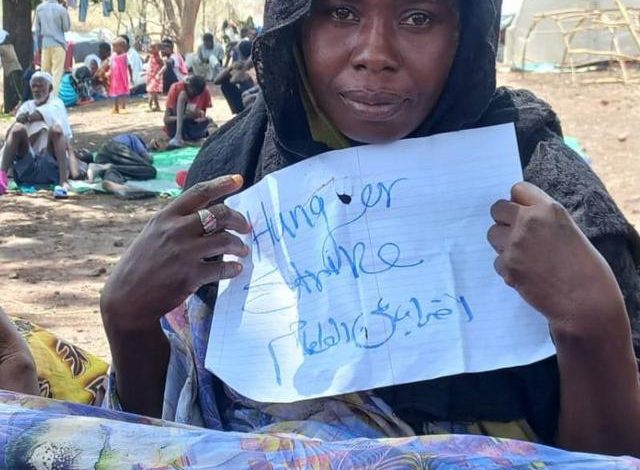 Hunger
Strike
اضراب عن الطعام